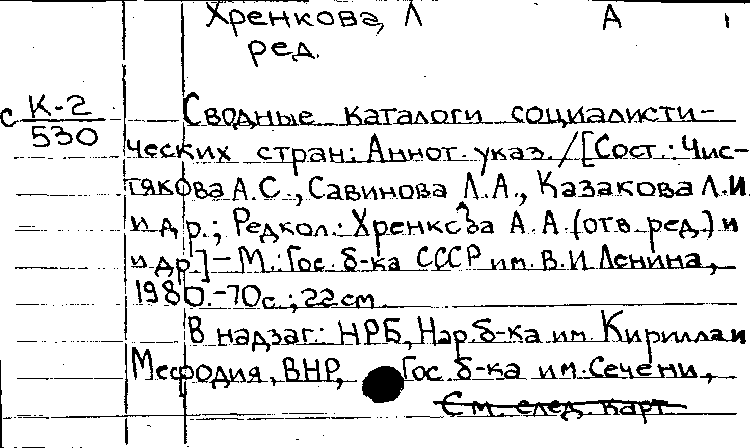 Хренкова, Л А
ред.
с К-2
530
Сводные каталоги социалисти-
ческих стран: Аннот. указ. /[Сост.: Чис-
тякова А.С., Савинова Л.А., Казакова Л.И
и др.; Редкол.: Хренкова А.А. (отв. ред.) и
и др.] - М.: Гос. б-ка СССР им. В.И Ленина,
1980. - 70с.; 22см.
В надзаг.: НРБ, Нар. б-ка им. Кирилла и
Мефодия, ВНР, Гос. б-ка им. Сечени,
См. след. карт